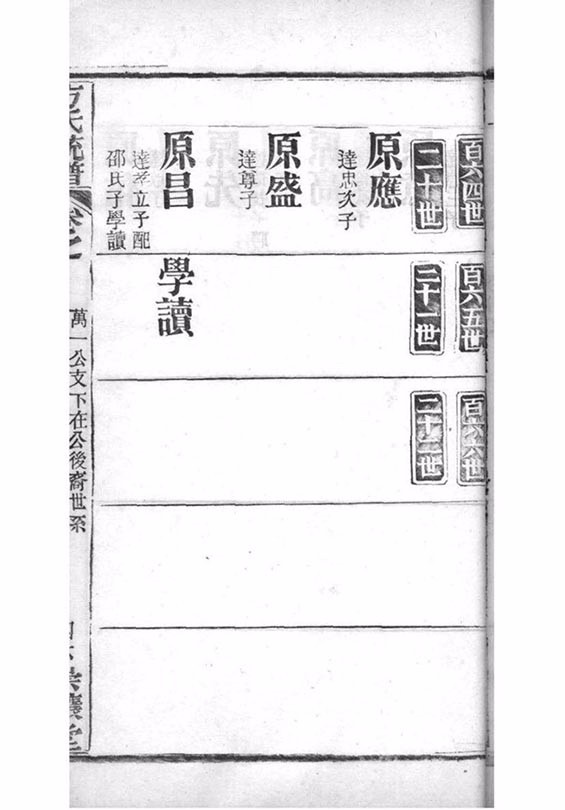 百六四世
百六五世
百六六世
二十世
二十一世
二十二世
原應
達忠次子
原盛
達尊子
原昌
達孝立子配
邵氏子學讀
學讀
方氏統譜
卷之
萬一公支下在公後裔世系